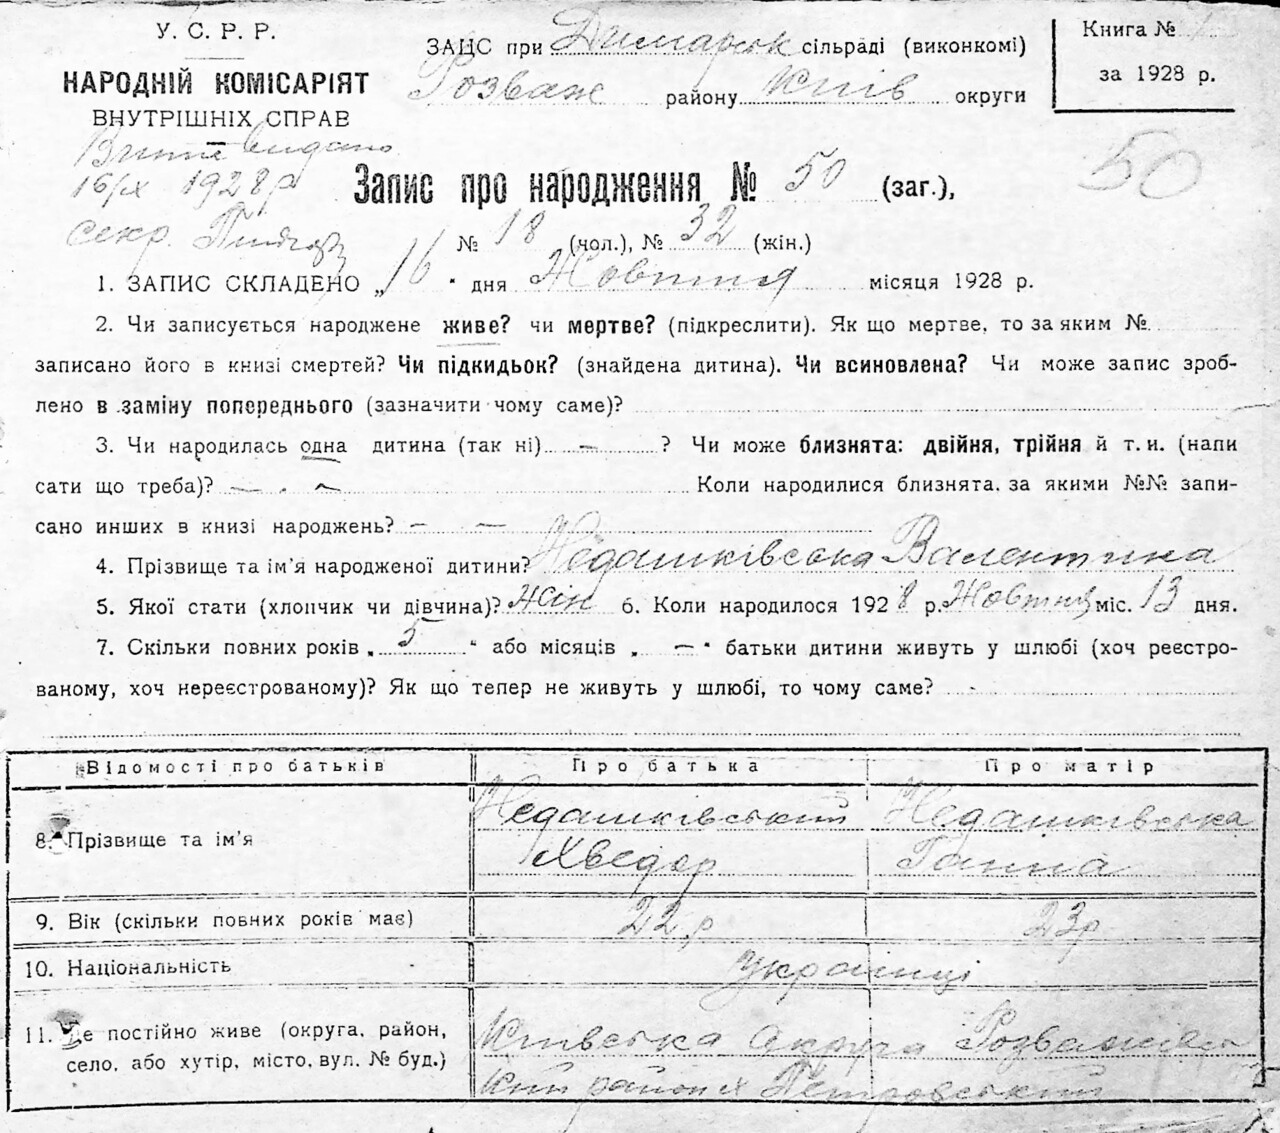 У. С. Р. Р.
НАРОДНІЙ КОМІСАРІЯТ
ВНУТРІШНІХ СПРАВ
ЗАЦС при Димарськ сільраді (виконкомі)
Розваж району Київ округи
Книга № 1
за 1928 р.
видано
16/х 1928 р
секр.
50
Запис про народження № 50 (заг.),
№ 18 (чол.), № 32 (жін.)
1. ЗАПИС СКЛАДЕНО „16 " дня Жовтня місяця 1928 р.
2. Чи записується народжене живе? чи мертве? (підкреслити). Як що мертве, то за яким №
записано його в книзі смертей? Чи підкидьок? (знайдена дитина). Чи всиновлена? Чи може запис зроб-
лено в заміну попереднього (зазначити чому саме)?
3. Чи народилась одна дитина (так ні) — ? Чи може близнята: двійня, трійня й т. и. (напи
сати що треба)? — . — Коли народилися близнята, за якими №№ запи-
сано инших в книзі народжень? — —
4. Прізвище та ім'я народженої дитини? Недашківська Валентина
5. Якої стати (хлопчик чи дівчина)? Жін 6. Коли народилося 1928 р. Жовтня міс. 13 дня.
7. Скільки повних років „ 5 " або місяців „ — " батьки дитини живуть у шлюбі (хоч реєстро-
ваному, хоч нереєстрованому)? Як що тепер не живуть у шлюбі, то чому саме? -
Відомості про батьків Про батька Про матір
8. Прізвище та ім'я Недашківський Хведор Недашківська Ганна
9. Вік (скільки повних років має) 22 р 23 р
10. Національність Українці
11. Де постійно живе (округа, район,
село, або хутір, місто, вул. № буд.)
Київська округа Розважівсь
кий район х Петровський